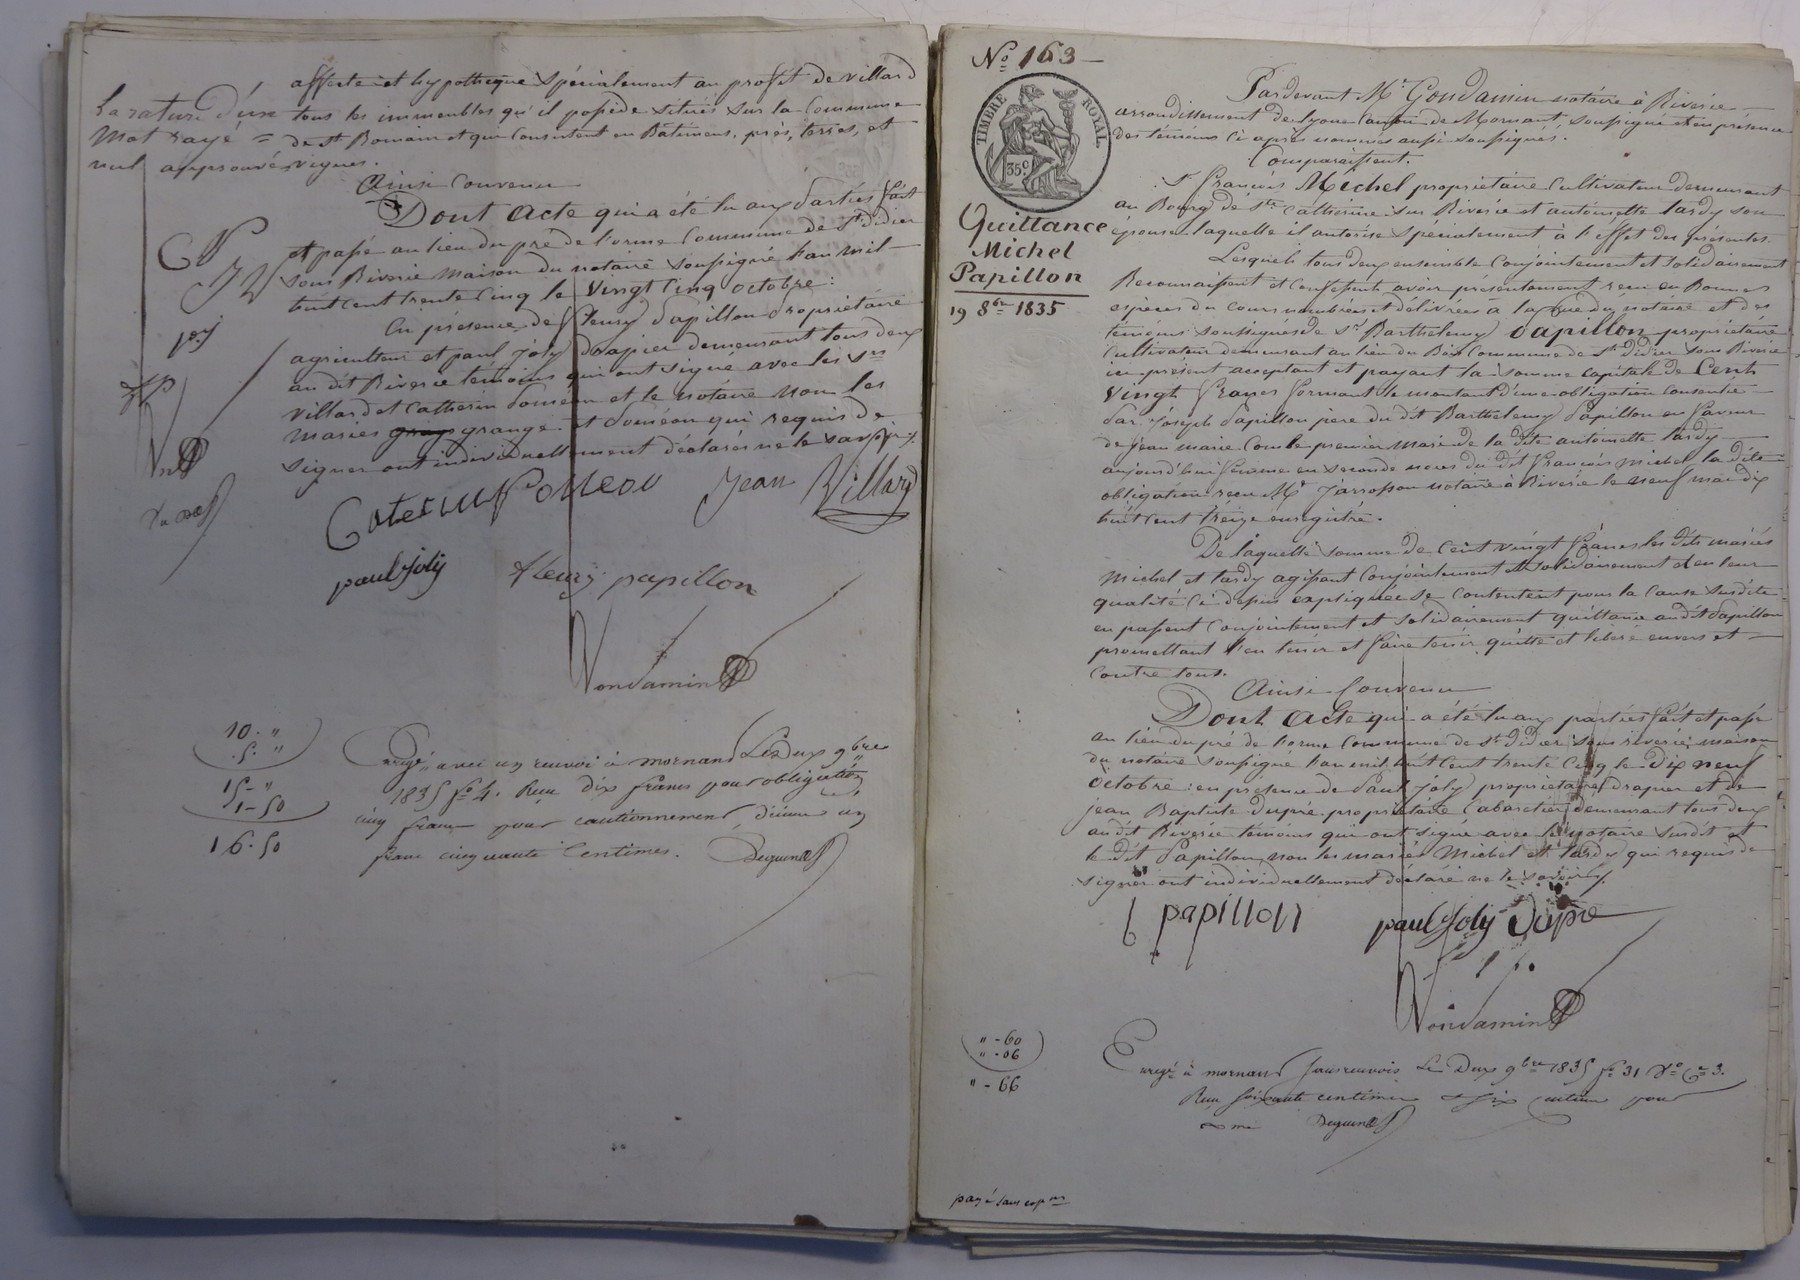 affecte et hypothèque spécialement au profit de villard
tous les immeubles qu'il possède situés sur la Commune
de St Romain et qui Consistent en Bâtimens, prés, terres, et
vignes.
La rature d'un
mot rayé =
nul approuvé
Ainsi Convenu
Dont Acte qui a été lu aux parties fait
et passé au lieu du pré de l'orme Commune de St Didier
sous Riverie maison du notaire soussigné l'an mil
huit cent trente Cinq le vingt Cinq octobre :
En présence de fleury papillon propriétaire
agriculteur et paul Joly drapier demeurant tous deux
au dit Riverie temoins qui ont signé avec les srs
villard et Catherin et le notaire non les
mariés grange et qui requis de
signer ont individuellement déclarés ne le savoir.
Jean Villard
paul Joly fleury papillon
Gondamin
10. "
5. "
15 - "
1 - 50
16 . 50
Enregé avec un renvoi à mornant Le Deux 9bre
1835 fo 4. Reçu dix francs pour obligation
cinq francs pour cautionnement, décime un
franc cinquante Centimes.
No 163
TIMBRE ROYAL
35 c
Quittance
Michel
Papillon
19 8bre 1835
Pardevant Me Gondamin notaire à Riverie
arrondissement de lyon Canton de Mornant, soussigné et en présence
des témoins ci après nommés aussi soussignés.
Comparaissent.
Sr françois Michel propriétaire Cultivateur demeurant
au Bourg de Ste Catherine sur Riverie et antoinette tardy son
épouse laquelle il autorise spécialement à l'effet des présentes.
Lesquels tous deux ensemble Conjointement et solidairement
Reconnaissent et Confessent avoir présentement reçu en Bonnes
espèces du cours nombrées et délivrées à la vue du notaire et des
témoins soussignés de Sr Barthelemy Papillon propriétaire
Cultivateur demeurant au lieu du Bois Commune de St Didier sous Riverie
ici présent acceptant et payant la somme Capitale de Cent
vingt francs formant le montant d'une obligation consentie
par Joseph Papillon père du dit Barthelemy Papillon en faveur
de Jean marie Combe premier mari de la dite antoinette tardy
aujourd'hui femme en seconde noces du dit françois Michel la dite
obligation reçu Me Jarrosson notaire à Riverie le neuf mai dix
huit cent treize enregistré.
De laquelle somme de Cent vingt francs les dits mariés
Michel et tardy agissant Conjointement et solidairement et en leur
qualité Ci dessus expliquée se Contentent pour la Cause susdite
en passent Conjointement et solidairement quittance au dit Papillon
promettant l'en tenir et faire tenir quitte et libéré envers et
Contre tous.
Ainsi Convenu
Dont Acte qui a été lu aux parties fait et passé
au lieu du pré de l'orme Commune de St Didier sous riverie, maison
du notaire soussigné l'an mil huit Cent trente Cinq le dix neuf
octobre : en présence de Paul Joly propriétaire drapier et de
jean Baptiste Dupré propriétaire Cabaretier demeurant tous deux
au dit Riverie témoins qui ont signé avec le notaire susdit et
le dit Papillon, non les mariés Michel et tardy qui requis de
signer ont individuellement déclaré ne le savoir.
b papillon paul Joly Dupré
Gondamin
" - 60
" - 06
" - 66
Enregé à mornant sans renvois Le Deux 9bre 1835 fo 31 Vo Ce 3.
Reçu soixante centimes & six centimes pour
payé sans